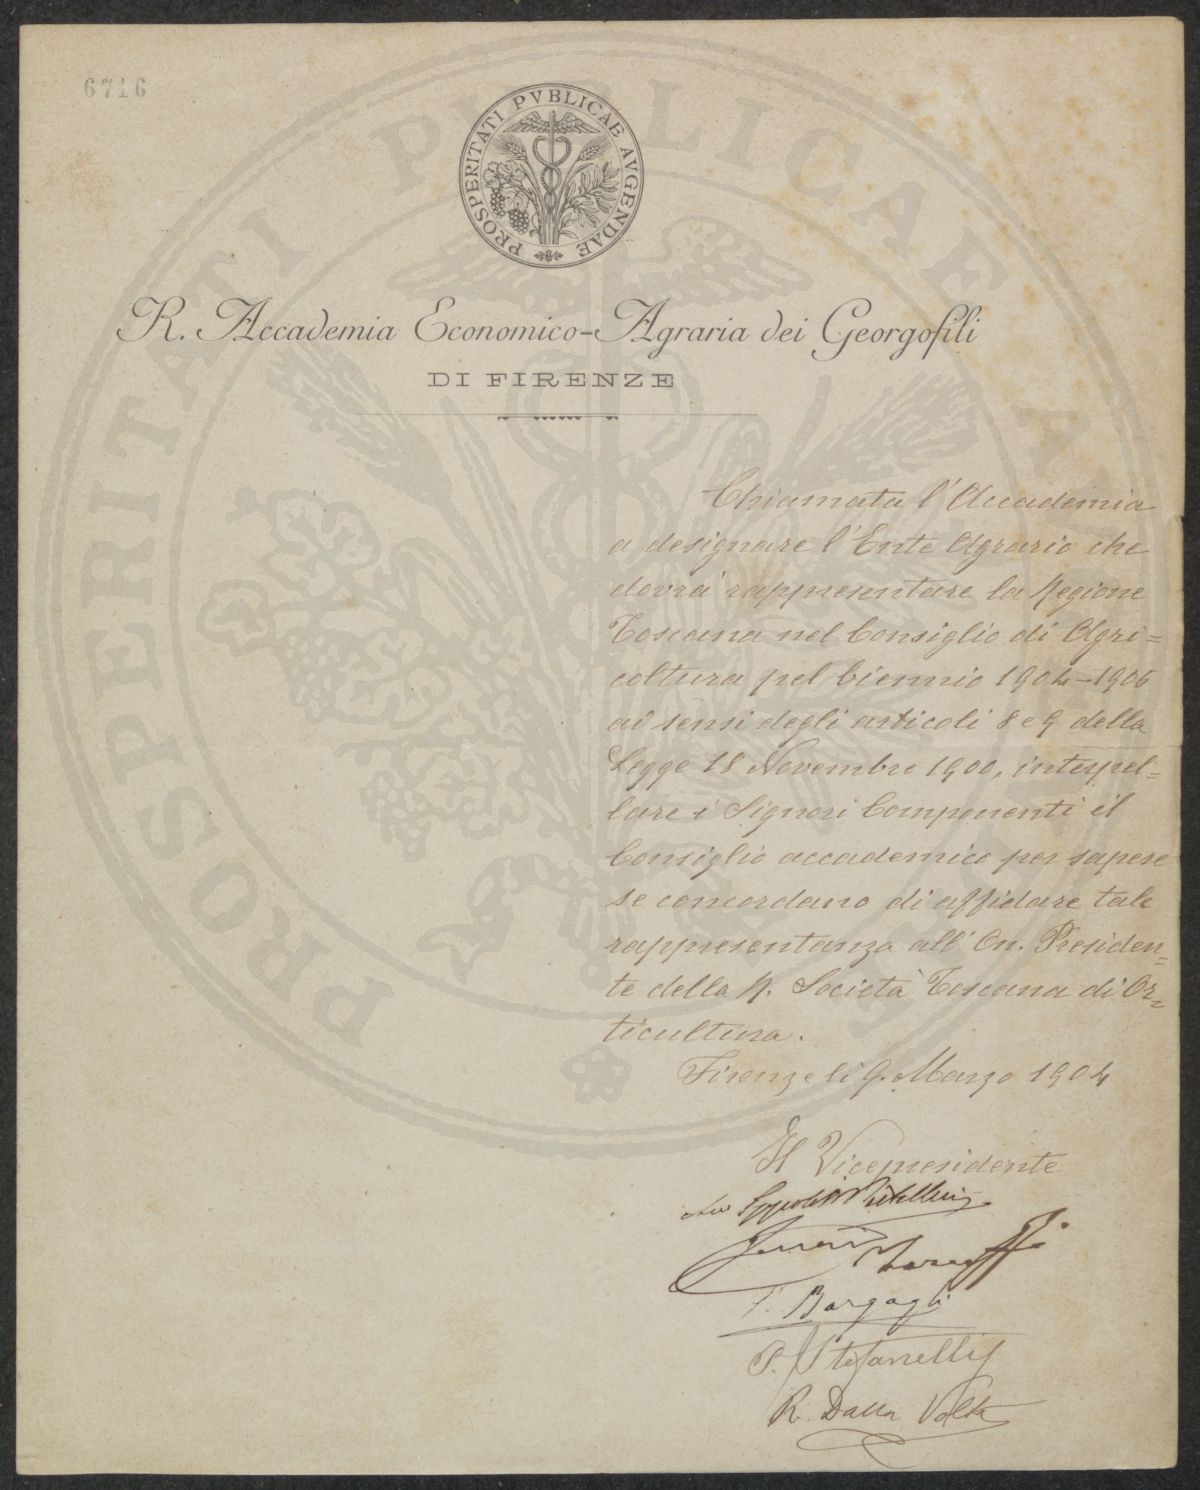 6716
PROSPERITATI PVBLICAE AVGENDAE
R. Accademia Economico-Agraria dei Georgofili
DI FIRENZE
Chiamata l'Accademia
a designare l'Ente Agrario che
dovrà rappresentare la Regione
Toscana nel Consiglio di Agri=
coltura pel biennio 1904-1906
ai sensi degli articoli 8 e 9 della
Legge 18 Novembre 1900, interpel=
lare i Signori Componenti il
Consiglio accademico per sapere
se concordano di affidare tale
rappresentanza all'On. Presiden=
te della R. Società Toscana di Or=
ticultura.
Firenze li 9. Marzo 1904
Il Vicepresidente
F. Bargagli
P. Stefanelli
R. Dalla Volta